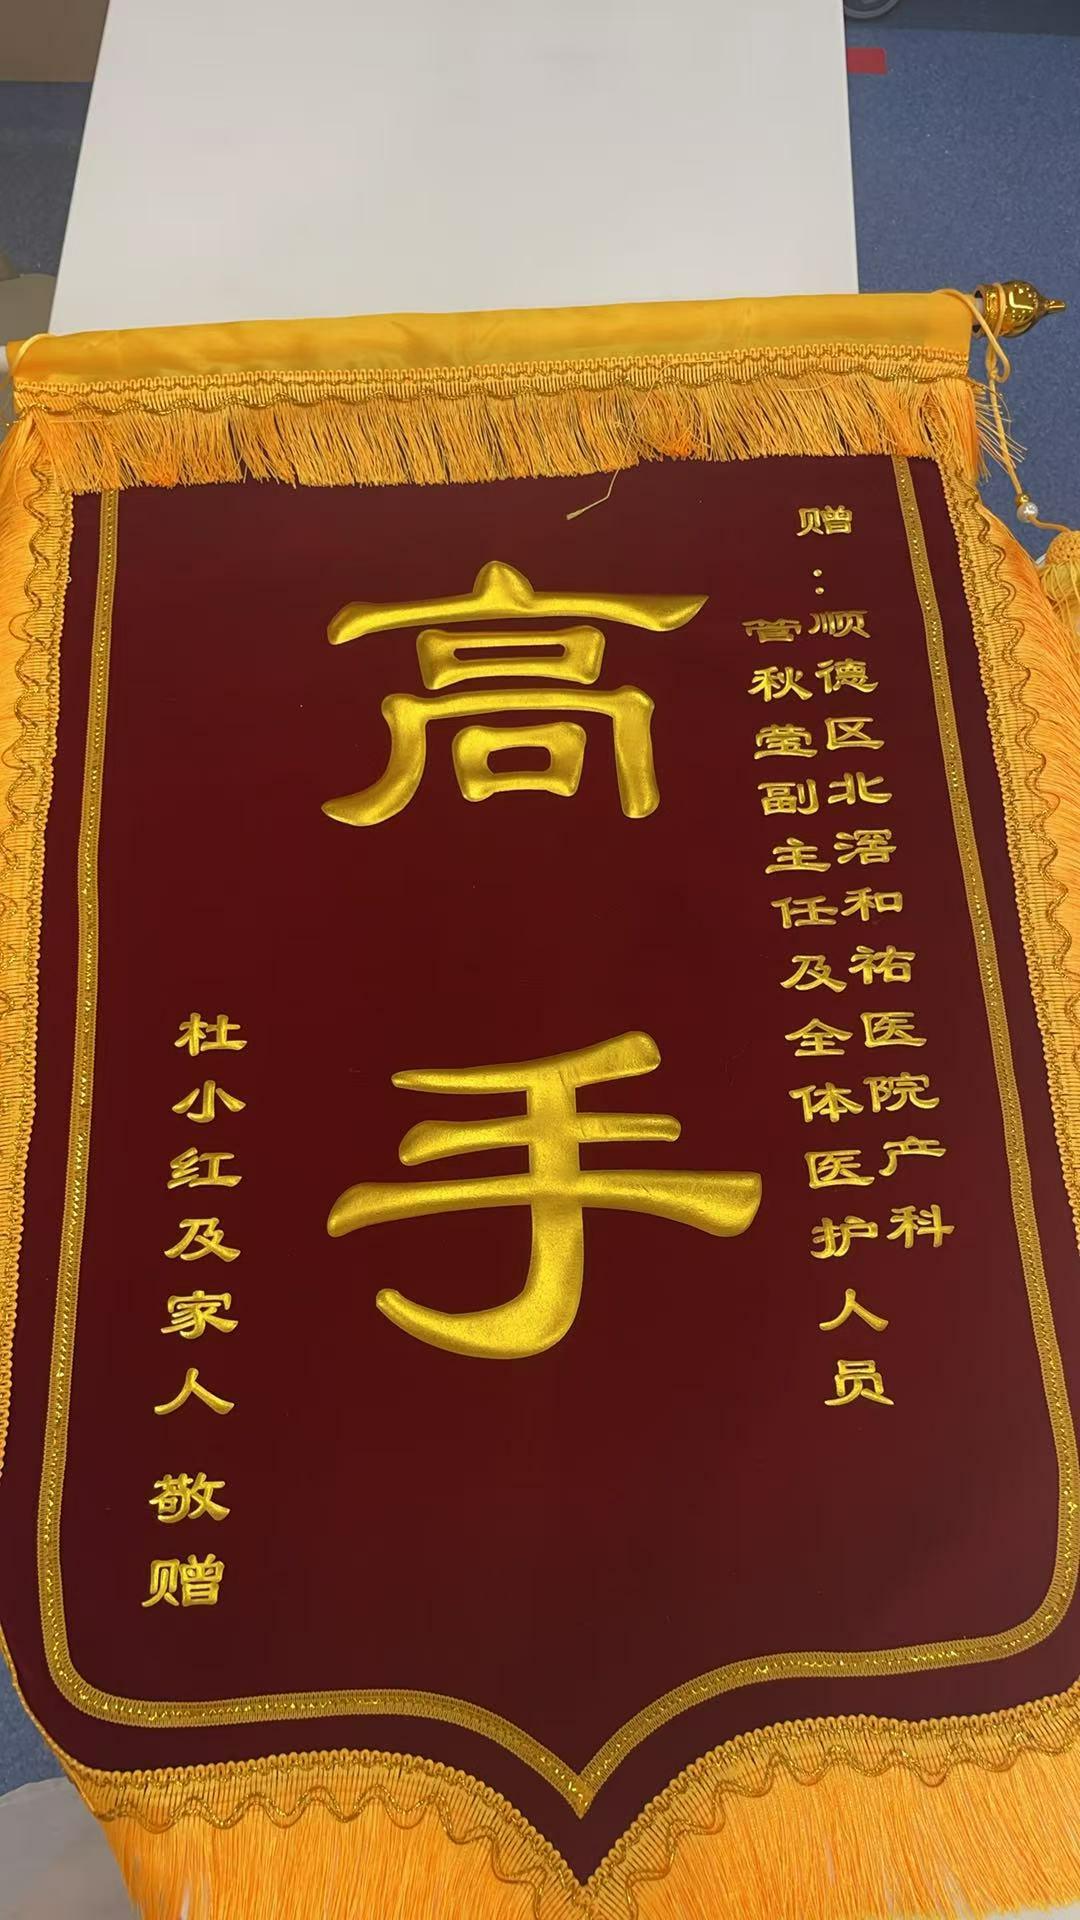 赠：顺德区北滘和祐医院产科
菅秋莹副主任及全体医护人员
高手
杜小红及家人 敬赠